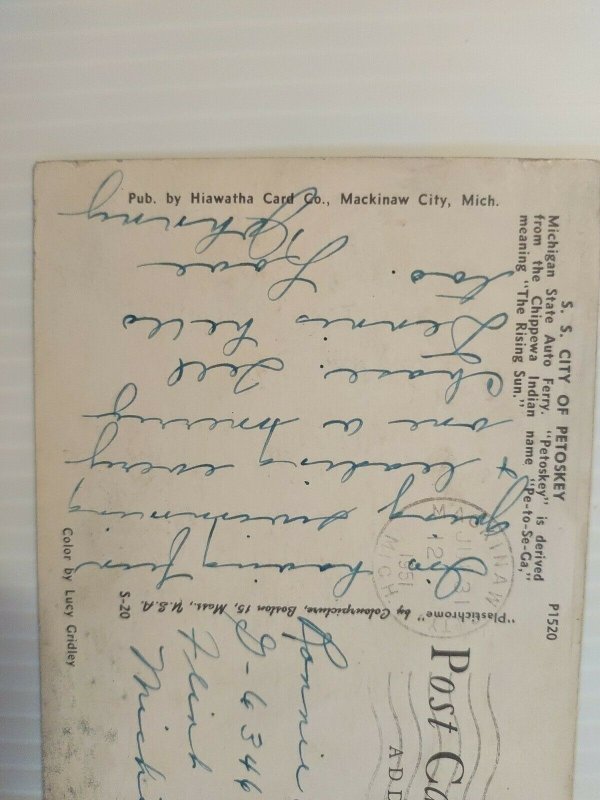 S. S. CITY OF PETOSKEY
Michigan State Auto Ferry. "Petoskey" is derived
from the Chippewa Indian name "Pe-to-Se-Ga,"
meaning "The Rising Sun."
P1520
I'm having fun
swimming
& leading every
one a merry
chase. Tell
Dennis hello
too.
Love
Johnny
Pub. by Hiawatha Card Co., Mackinaw City, Mich.
Color by Lucy Gridley
S-20
"Plastichrome" by Colourpicture, Boston 15, Mass., U.S.A.
JUL 31
12
1951
MICH
Post Ca
ADD
Ronnie
G-6346
Flint
Michi